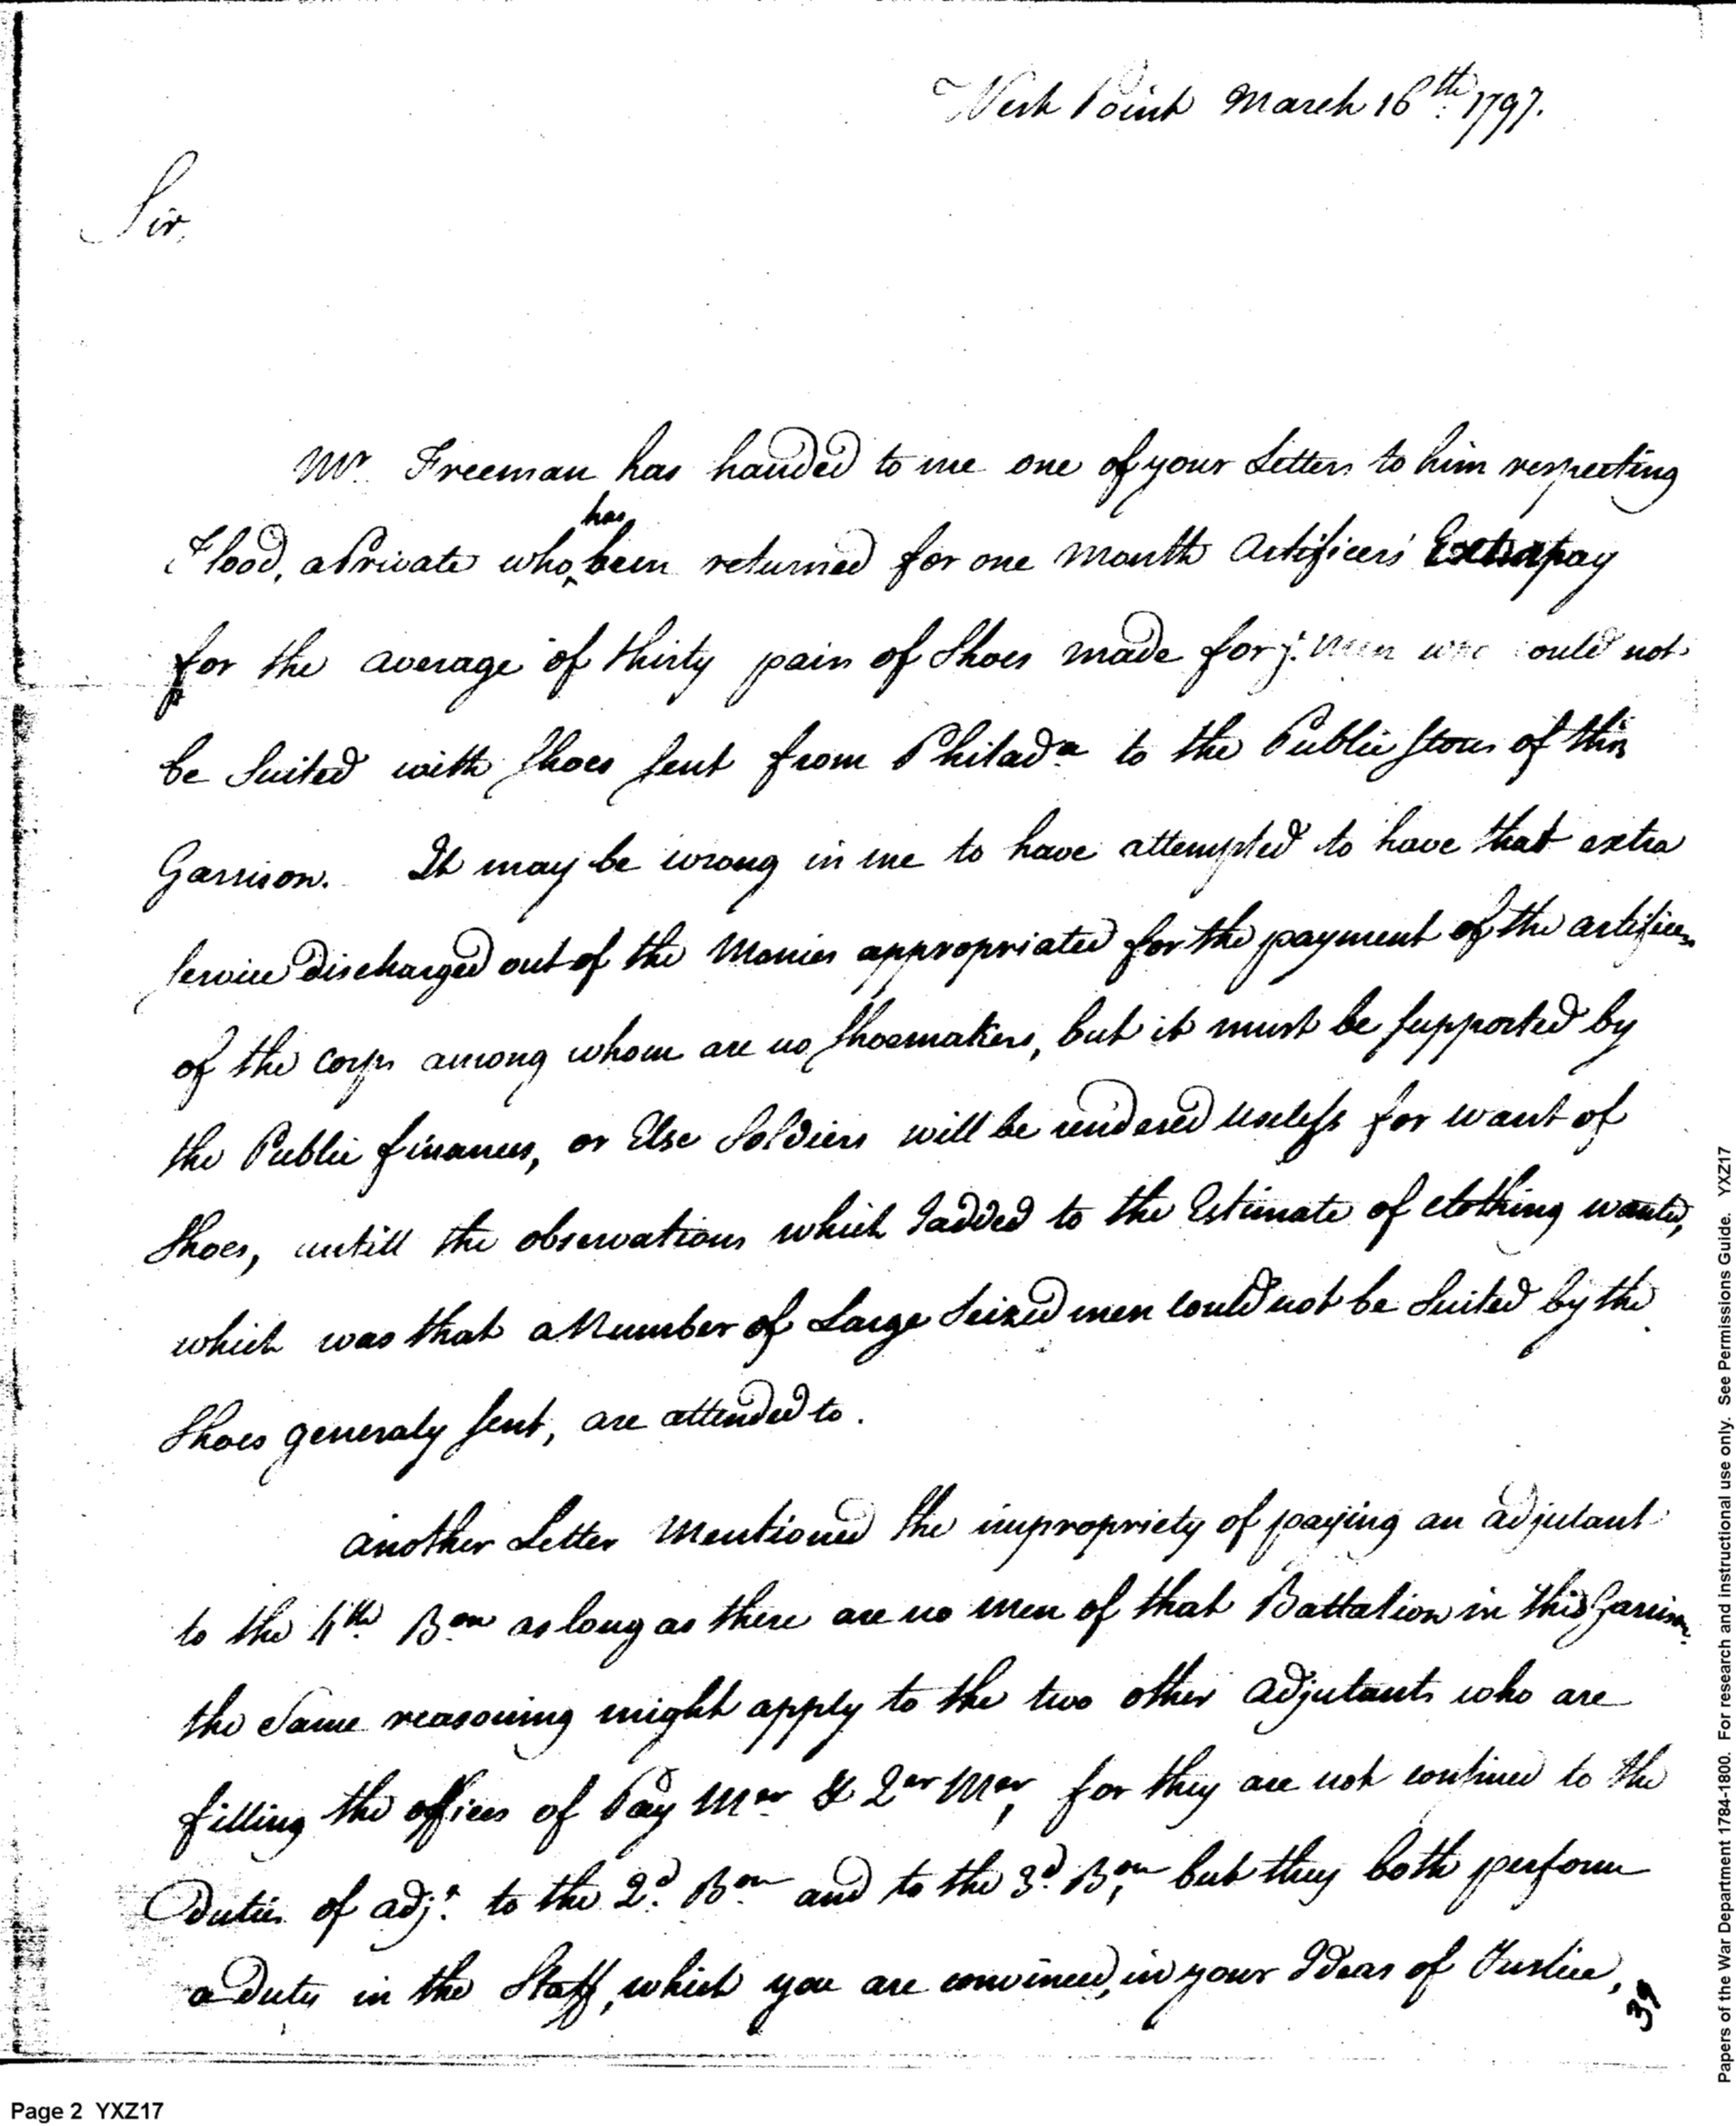 West Point March 16th 1797.
Sir,
Mr. Freeman has handed to me one of your Letters to him respecting
has
Flood, a Private who ‸ been returned for one month Artificers' Extra pay
for the average of thirty pairs of Shoes made for ye. men who could not
be Suited with Shoes sent from Philada to the Public Stores of this
Garrison. It may be wrong in me to have attempted to have that extra
Service discharged out of the Monies appropriated for the payment of the artificers
of the corps among whom are no Shoemakers, but it must be supported by
the Public finances, or Else Soldiers will be rendered useless for want of
Shoes, untill the observations which I added to the Estimate of clothing wanted,
which was that a Number of Large Seized men could not be Suited by the
Shoes generaly sent, are attended to.
Another Letter Mentioned the impropriety of paying an adjutant
to the 4th Bon as long as there are no men of that Battalion in this Garrison.
the Same reasoning might apply to the two other adjutants who are
filling the offices of Pay Mer & Qer Mer, for they are not confined to the
Duties of adjt. to the 2d. Bon and to the 3d. Bon, but they both perform
a Duty in the Staff, which you are convinced, in your Ideas of Justice,
39
Page 2 YXZ17
Papers of the War Department 1784-1800. For research and instructional use only. See Permissions Guide. YXZ17